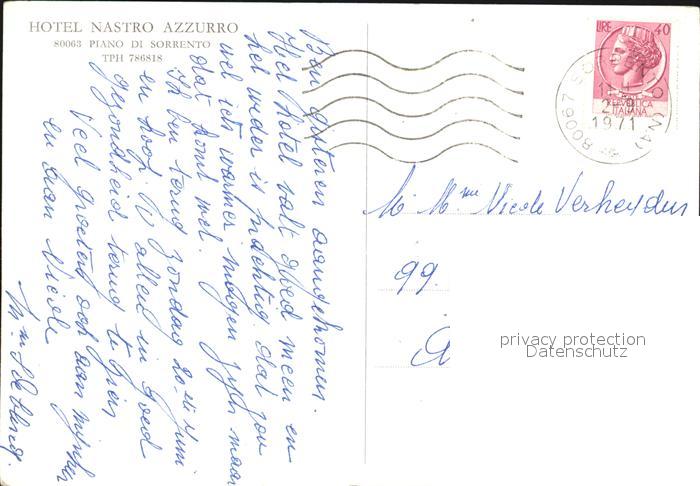 HOTEL NASTRO AZZURRO
80063 PIANO DI SORRENTO
TPH 786818
Ben gisteren aangekomen.
Het hotel valt goed meen en
het weder is prachtig. dat zou
wel iets warmer mogen zijn maar
dat komt wel.
Ik ben terug Zondag 20 Juni
en hoop U allen in goed
gezondheid terug te zien
Veel groeten ook aan mijnheer
en aan Nicole
LIRE 40
REPVBBLICA
ITALIANA
80067 SO (NA)
1971
M. Mme Nicole Verheyden
99.
A
privacy protection
Datenschutz